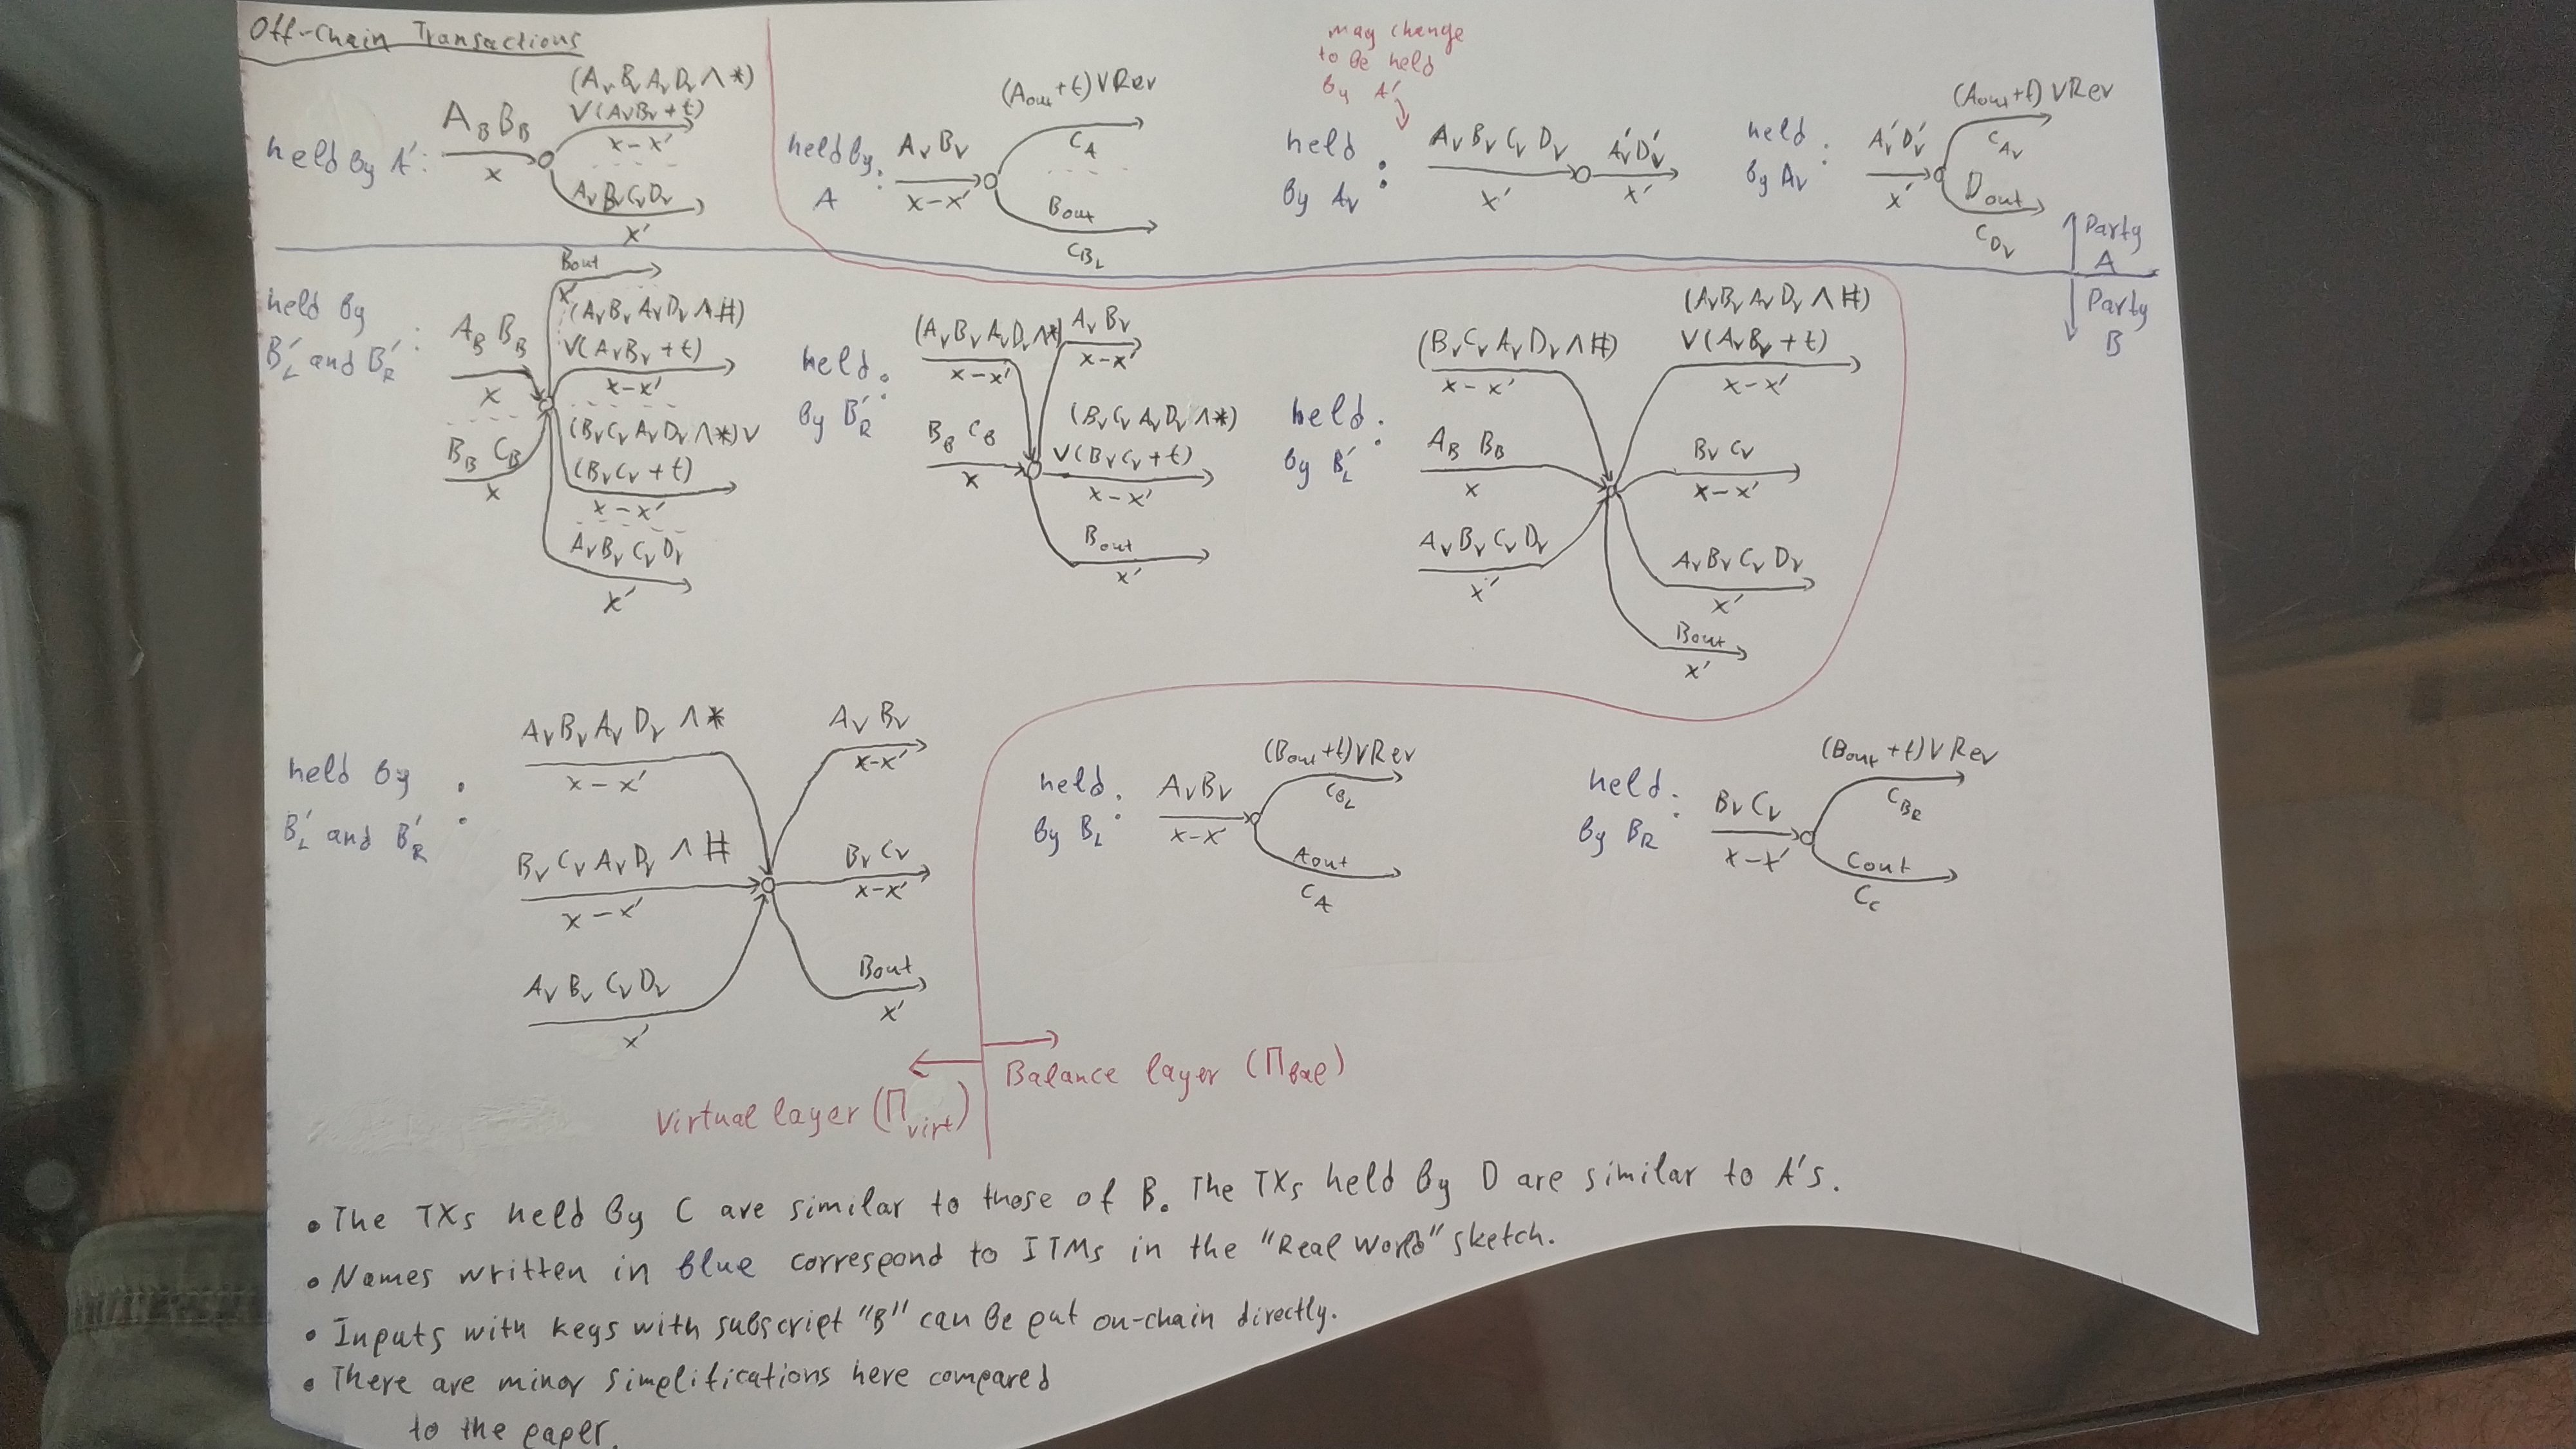 Off-Chain Transactions
held by A':
A_B B_B
x
(A_V B_V A_V D_V ∧ *)
V (A_V B_V + t)
x-x'
A_V B_V C_V D_V
x'
held by
A :
A_V B_V
x-x'
(A_out + t) V Rev
C_A
B_out
C_B_L
may change
to be held
by A'
held
by A_V :
A_V B_V C_V D_V
x'
A'_V D'_V
x'
held
by A_V :
A'_V D'_V
x'
(A_out + t) V Rev
C_A_V
D_out
C_D_V
Party
A
Party
B
held by
B'_L and B'_R :
A_B B_B
x
B_B C_B
x
B_out
x'
(A_V B_V A_V D_V ∧ #)
V (A_V B_V + t)
x-x'
(B_V C_V A_V D_V ∧ *) V
(B_V C_V + t)
x-x'
A_V B_V C_V D_V
x'
held
by B'_R :
(A_V B_V A_V D_V ∧ *)
x-x'
B_B C_B
x
A_V B_V
x-x'
(B_V C_V A_V D_V ∧ *)
V (B_V C_V + t)
x-x'
B_out
x'
held
by B'_L :
(B_V C_V A_V D_V ∧ #)
x-x'
A_B B_B
x
A_V B_V C_V D_V
x'
(A_V B_V A_V D_V ∧ #)
V (A_V B_V + t)
x-x'
B_V C_V
x-x'
A_V B_V C_V D_V
x'
B_out
x'
held by
B'_L and B'_R :
A_V B_V A_V D_V ∧ *
x-x'
B_V C_V A_V D_V ∧ #
x-x'
A_V B_V C_V D_V
x'
A_V B_V
x-x'
B_V C_V
x-x'
B_out
x'
held
by B_L :
A_V B_V
x-x'
(B_out + t) V Rev
C_B_L
A_out
C_A
held
by B_R :
B_V C_V
x-x'
(B_out + t) V Rev
C_B_R
C_out
C_C
Balance layer (Π_bal)
Virtual layer (Π_virt)
• The TXs held by C are similar to those of B. The TXs held by D are similar to A's.
• Names written in blue correspond to ITMs in the "Real World" sketch.
• Inputs with keys with subscript "B" can be put on-chain directly.
• There are minor simplifications here compared
to the paper.